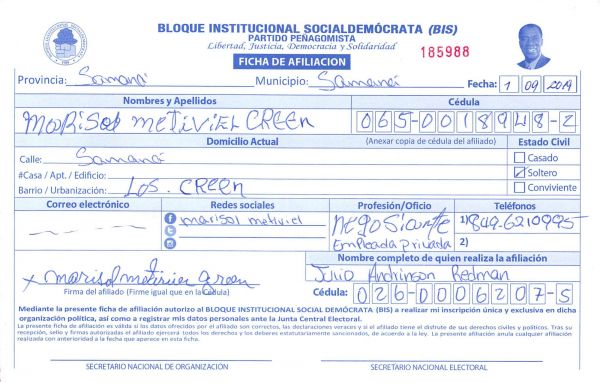 BLOQUE INSTITUCIONAL SOCIALDEMÓCRATA (BIS)
PARTIDO PEÑAGOMISTA
Libertad, Justicia, Democracia y Solidaridad
185988
FICHA DE AFILIACION
Provincia: Samaná Municipio: Samaná Fecha: 1 09 2019
Nombres y Apellidos Cédula
MARISOL METIVIEL CREEN 065-0018948-2
Domicilio Actual (Anexar copia de cédula del afiliado) Estado Civil
Calle: Samaná Casado
#Casa / Apt. / Edificio: Soltero
Barrio / Urbanización: LOS. CREEN Conviviente
Correo electrónico Redes sociales Profesión/Oficio Teléfonos
marisol metiviel negosiante 1) 849-6210995
Empleada privada 2)
Nombre completo de quien realiza la afiliación
x marisol metivier green Julio Redman
Firma del afiliado (Firme igual que en la Cédula) Cédula: 026-0006207-5
Mediante la presente ficha de afiliación autorizo al BLOQUE INSTITUCIONAL SOCIAL DEMÓCRATA (BIS) a realizar mi inscripción única y exclusiva en dicha
organización política, así como a registrar mis datos personales ante la Junta Central Electoral.
La presente ficha de afiliación es válida si los datos ofrecidos por el afiliado son correctos, las declaraciones veraces y si el afiliado tiene el disfrute de sus derechos civiles y políticos. Tras su
recepción, sello y firmas autorizadas el afiliado ejercerá todos los derechos y los deberes estatutariamente sancionados, de acuerdo a la ley. La presente afiliación anula cualquier afiliación
realizada con anterioridad a la fecha que aparece en esta ficha.
SECRETARIO NACIONAL DE ORGANIZACIÓN SECRETARIO NACIONAL ELECTORAL